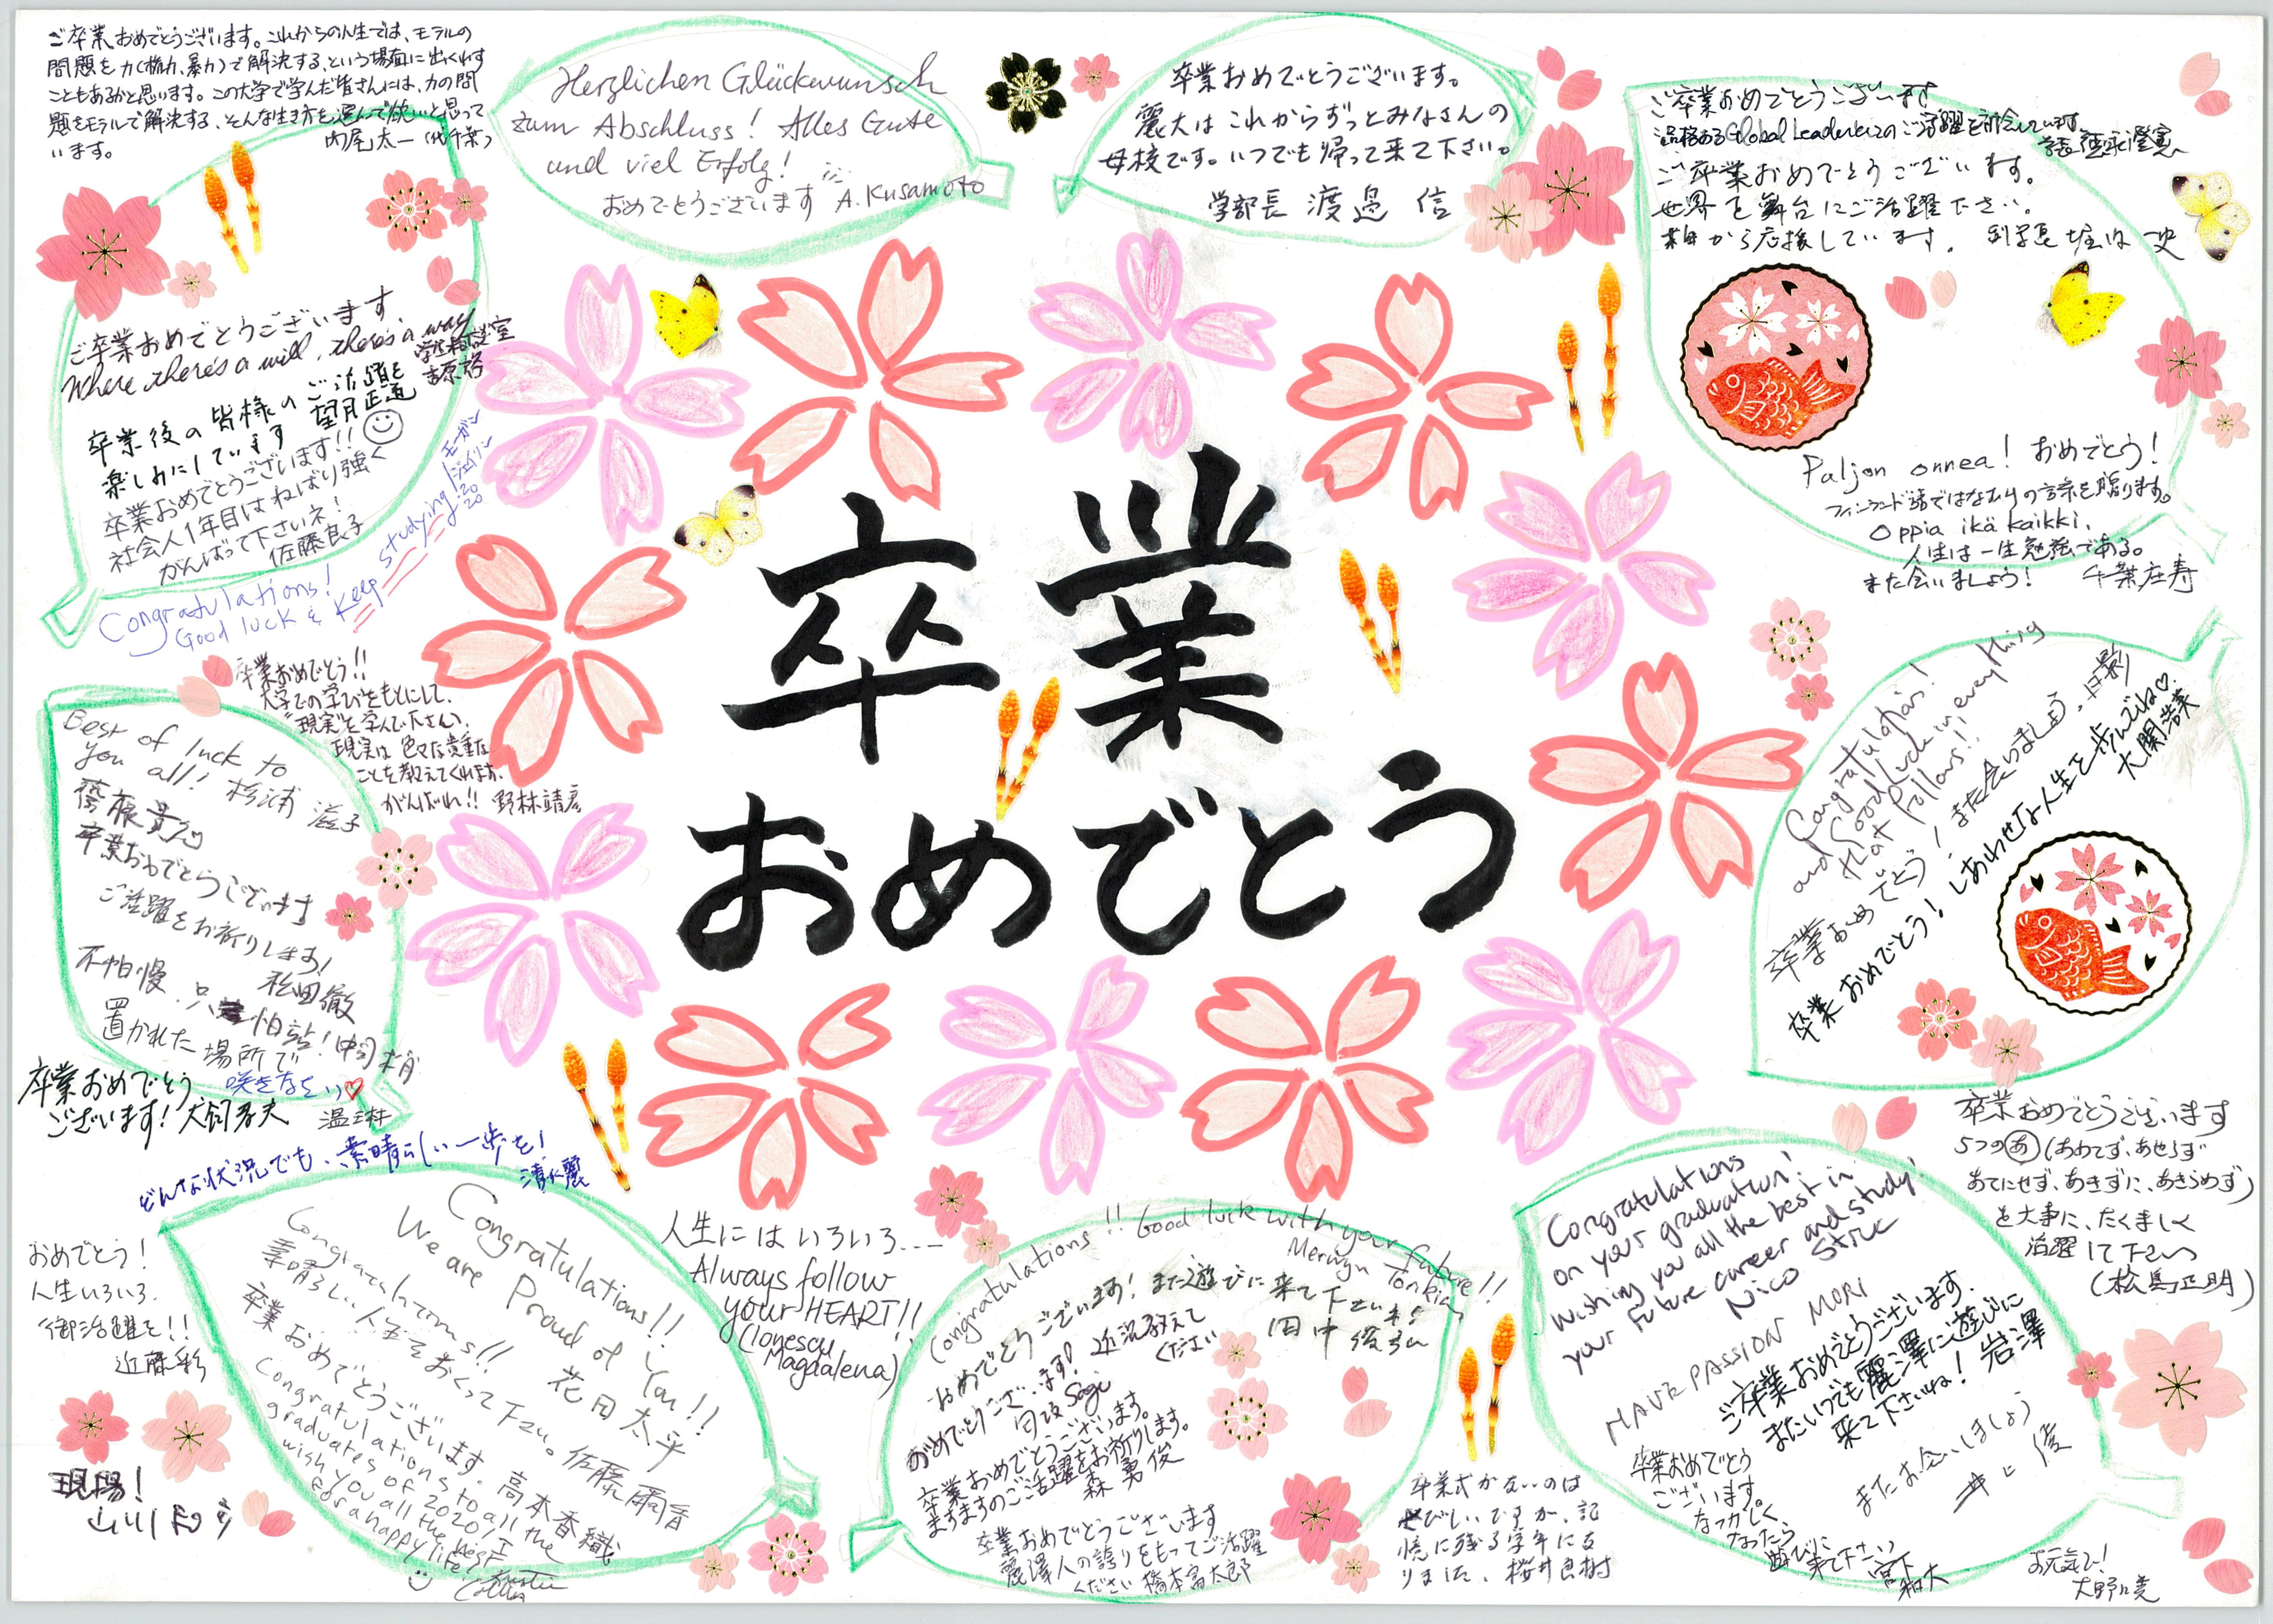 卒業
おめでとう
ご卒業おめでとうございます。これからの人生では、モラルの
問題を力(権力、暴力)で解決する、という場面に出くわす
こともあるかと思います。この大学で学んだ皆さんには、力の問
題をモラルで解決する、そんな生き方を選んで欲しいと思って
います。
Herzlichen Glückwunsch
zum Abschluss! Alles Gute
und viel Erfolg!
おめでとうございます A. Kusamoto
卒業おめでとうございます。
麗大はこれからずっとみなさんの
母校です。いつでも帰って来て下さい。
学部長 渡邊 信
ご卒業おめでとうございます
品格あるGlobal Leaderとしてのご活躍を祈念しています
ご卒業おめでとうございます。
世界を舞台にご活躍下さい。
から応援しています。 副学長 堀内 一史
ご卒業おめでとうございます。
Where there's a will, there's a way
学生相談室
卒業後の皆様のご活躍を
楽しみにしています 望月正道
卒業おめでとうございます!!
社会人1年目はねばり強く
がんばって下さいネ!
佐藤良子
Congratulations!
Good luck & Keep studying!
モーガン
ジェイソン
2020
Paljon onnea! おめでとう!
フィンランド語ではなむけの言葉を贈ります。
Oppia ikä kaikki.
人生は一生勉強である。
また会いましょう! 千葉庄寿
卒業おめでとう!!
大学での学びをもとにして、
"現実"を学んで下さい。
現実は色々な貴重な
ことを教えてくれます。
がんばれ!! 野林靖彦
Best of luck to
you all! 杉浦 滋子
齋藤貴志
卒業おめでとうございます
ご活躍をお祈りします!
松田徹
不怕慢、只怕站!
置かれた場所で
咲きなさい♡
温琳
卒業おめでとう
ございます! 犬飼孝夫
どんな状況でも、素晴らしい一歩を!
清水麗
Congratulations!
and Good Luck in everything
that follows!!
卒業おめでとう! また会いましょう。日影
卒業おめでとう! しあわせな人生を歩んでね♡
大関浩美
卒業おめでとうございます
5つのあ(あわてず、あせらず
あてにせず、あきずに、あきらめず)
を大事に、たくましく
活躍して下さい
(松島正明)
おめでとう!
人生いろいろ、
御活躍を!!
近藤彩
現場!
Congratulations!!
We are Proud of You!!
花田太平
Congratulations!!
素晴らしい人生をおくって下さい。佐藤
卒業おめでとうございます。高本香織
Congratulations to all the
graduates of 2020! I
wish you all the best
for a happy life.
人生にはいろいろ....
Always follow
your HEART!!
(Ionescu
Magdalena)
Congratulations!! Good luck with your future!!
Merwyn Torikian
おめでとうございます! また遊びに来て下さいネ!
田中俊弘
おめでとうございます! 近況教えて
ください
卒業おめでとうございます。
ますますのご活躍をお祈りします。
森 勇俊
卒業おめでとうございます
麗澤人の誇りをもってご活躍
ください 橋本富太郎
卒業式がないのは
さびしいですが、記
憶に残る学年にな
りました。 桜井良樹
Congratulations
on your graduation!
Wishing you all the best in
your future career and study!
Nico Strk
HAVE PASSION MORI
ご卒業おめでとうございます。
またいつでも麗澤に遊びに
来て下さいね! 岩澤
またお会いしましょう
井上 優
卒業おめでとう
ございます。
なつかしく
なったら
遊びに
来て下さい
宮下
和大
お元気で!